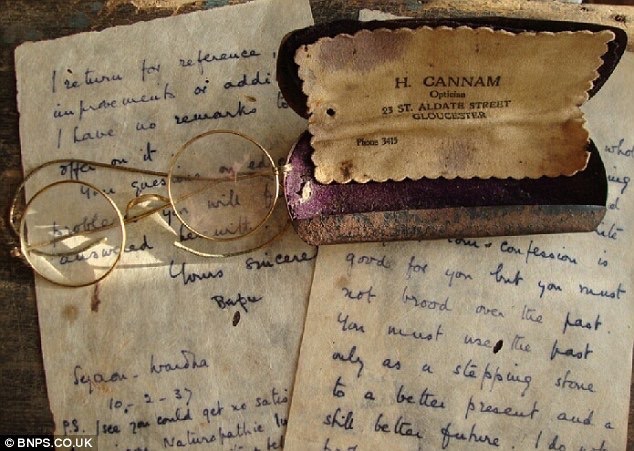 I return for reference,
improvements or addi
I have no remarks to
offer on it
You
question on ad
problems
you will f
answered herewith
Yours sincere
Bapu
Segaon - Wardha
10-2-37
P.S. I see you could get no satis
Naturopathic
H. CANNAM
Optician
23 ST. ALDATE STREET
GLOUCESTER
Phone 3415
confession is
good for you but you must
not brood over the past.
You must use the past
only as a stepping stone
to a better present and a
still better future. I do not
© BNPS.CO.UK